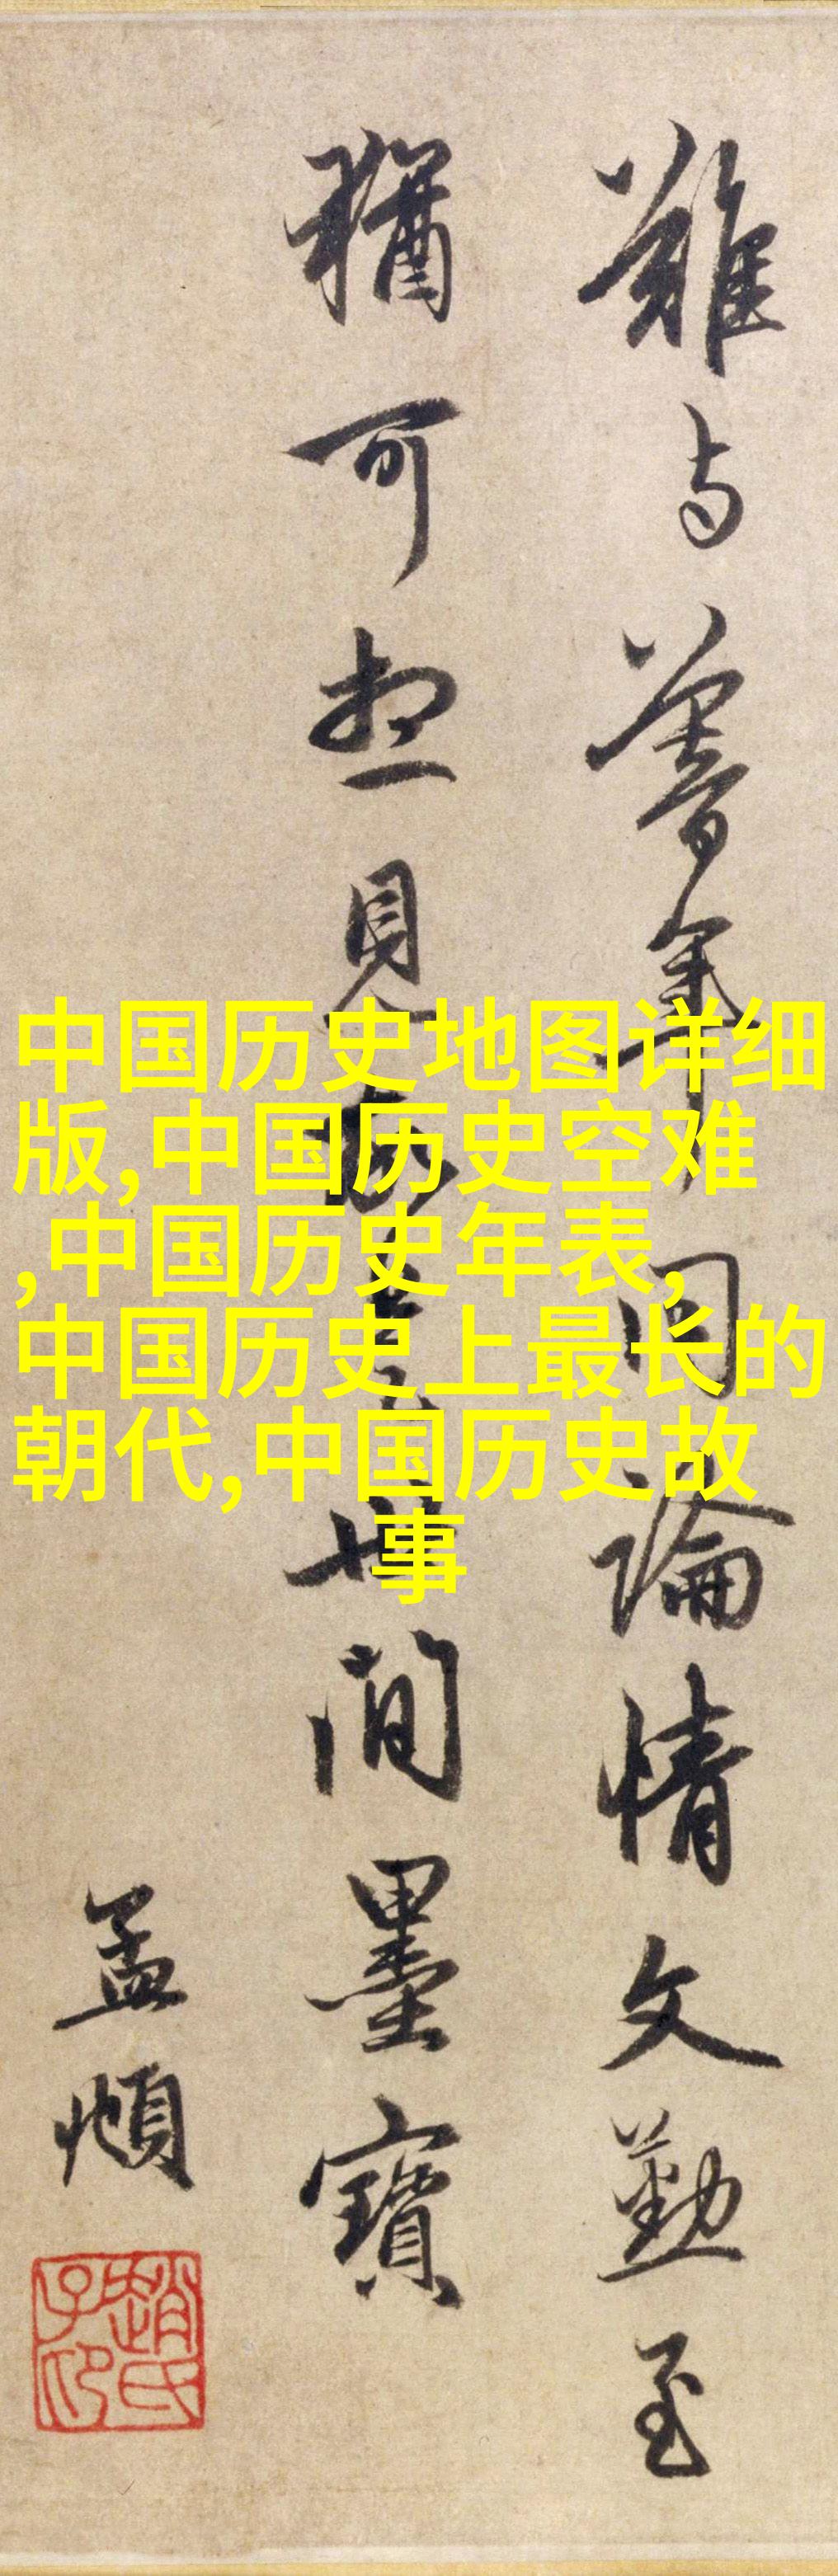 難与暮年同論情文勤至
猶可想見故是世間墨寶
孟頫
趙氏子昂
中国历史地图详细
版,中国历史空难
,中国历史年表,
中国历史上最长的
朝代,中国历史故
事